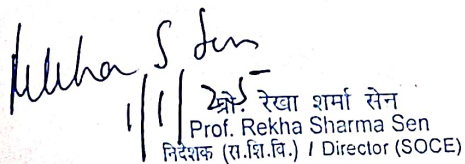 Rekha S Sen
1/1/25
प्रो. रेखा शर्मा सेन
Prof. Rekha Sharma Sen
निदेशक (स.शि.वि.) / Director (SOCE)